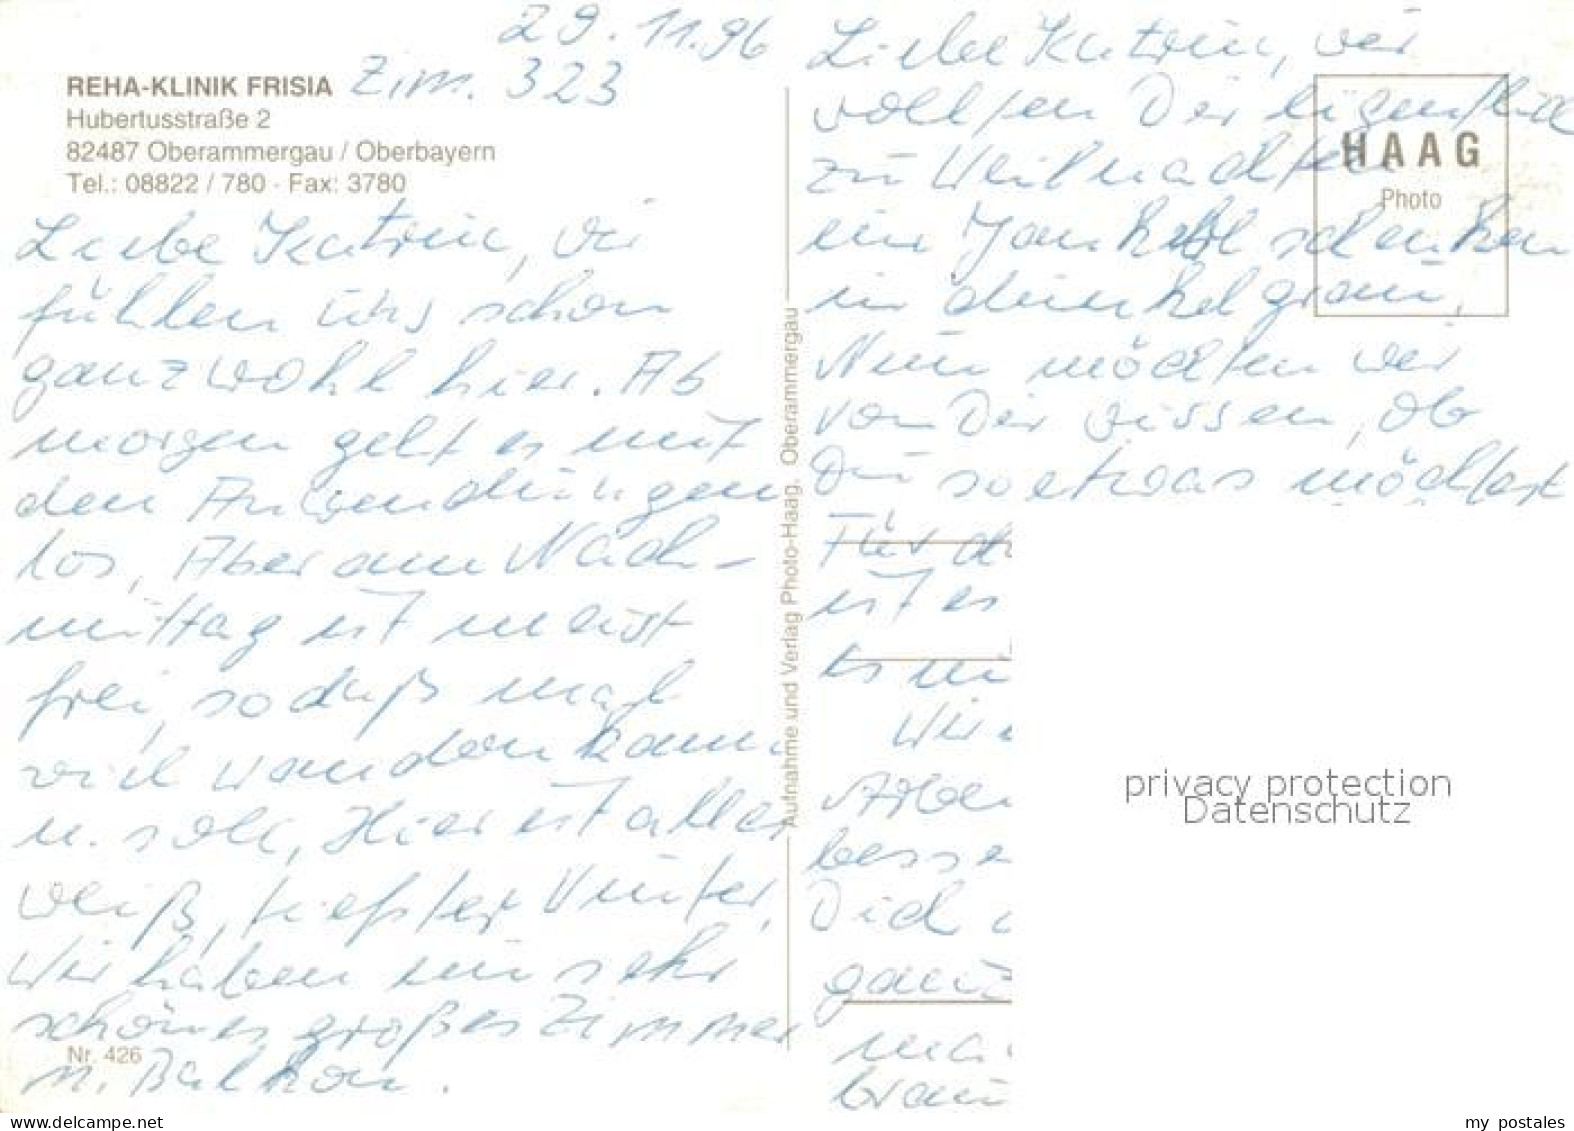 29.11.96
REHA-KLINIK FRISIA Zim. 323
Hubertusstraße 2
82487 Oberammergau / Oberbayern
Tel.: 08822 / 780 · Fax: 3780
Liebe Katrin, wir
fühlen uns schon
ganz wohl hier. Ab
morgen geht es mit
den Anwendungen
los, Aber am Nach-
mittag ist meist
frei, so daß mal
viel wandern kann
u. soll, Hier ist alles
weiß, tiefster Winter,
Wir haben ein sehr
schönes großes Zimmer
m. Balkon.
Nr. 426
Aufnahme und Verlag Photo-Haag, Oberammergau
Liebe Katrin, wir
wollten Dir eigentlich
zu Weihnachten
ein schenken
in dunkelgrau,
Nun möchten wir
von Dir wissen, ob
Du so etwas möchtest
Für
ist es
es
Wir
Aber
besse
Dich
ganz
ma
brau
HAAG
Photo
privacy protection
Datenschutz
my postales